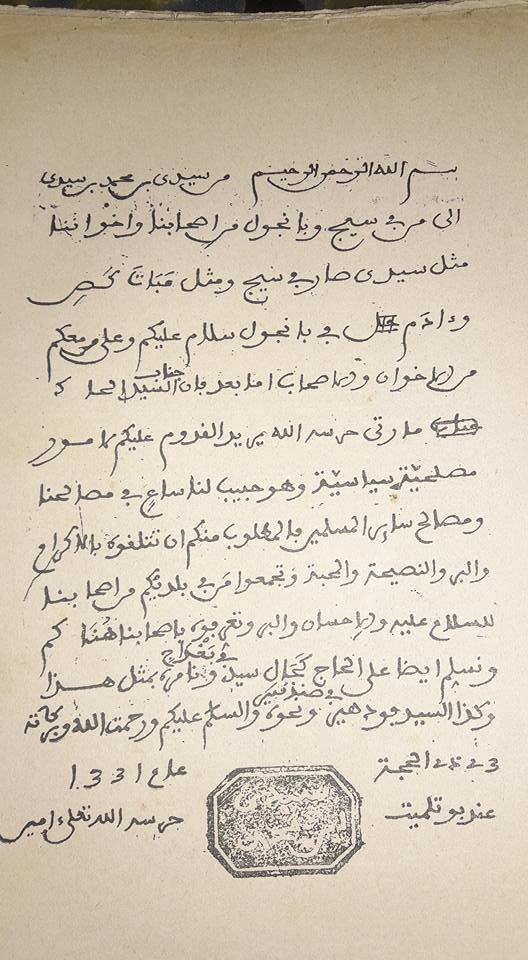 بسم الله الرحمن الرحيم من سيدي بن محمد بن سيدي
الى من في سيج وبانجول من احبابنا واخواننا
مثل سيدي صار في سيج ومثل مباتا
وءادم في بانجول سلام عليكم وعلى من معكم
من الاخوان والاصحاب اما بعد فإن جناب السيد الحا كم
مارتي حرسه الله يريد القدوم عليكم لامور
مصلحية سياسية وهو حبيب لنا ساع في مصالحنا
ومصالح سائر المسلمين فالمطلوب منكم ان تتلقوه بالاكرام
والبر والنصيحة والمحبة وتجمعوا من في بلديكم من احبابنا
للسلام عليه والاحسان والبر وتعرفوه باصحابنا هناكم
ونسلم ايضا على الحاج سين في ونامره بمثل هذا
وكذا السيد في ونحوه والسلام عليكم ورحمت الله وبركاته
23 الحجة عام 1331
عند بوتلميت حرسه الله تعلى ءامين